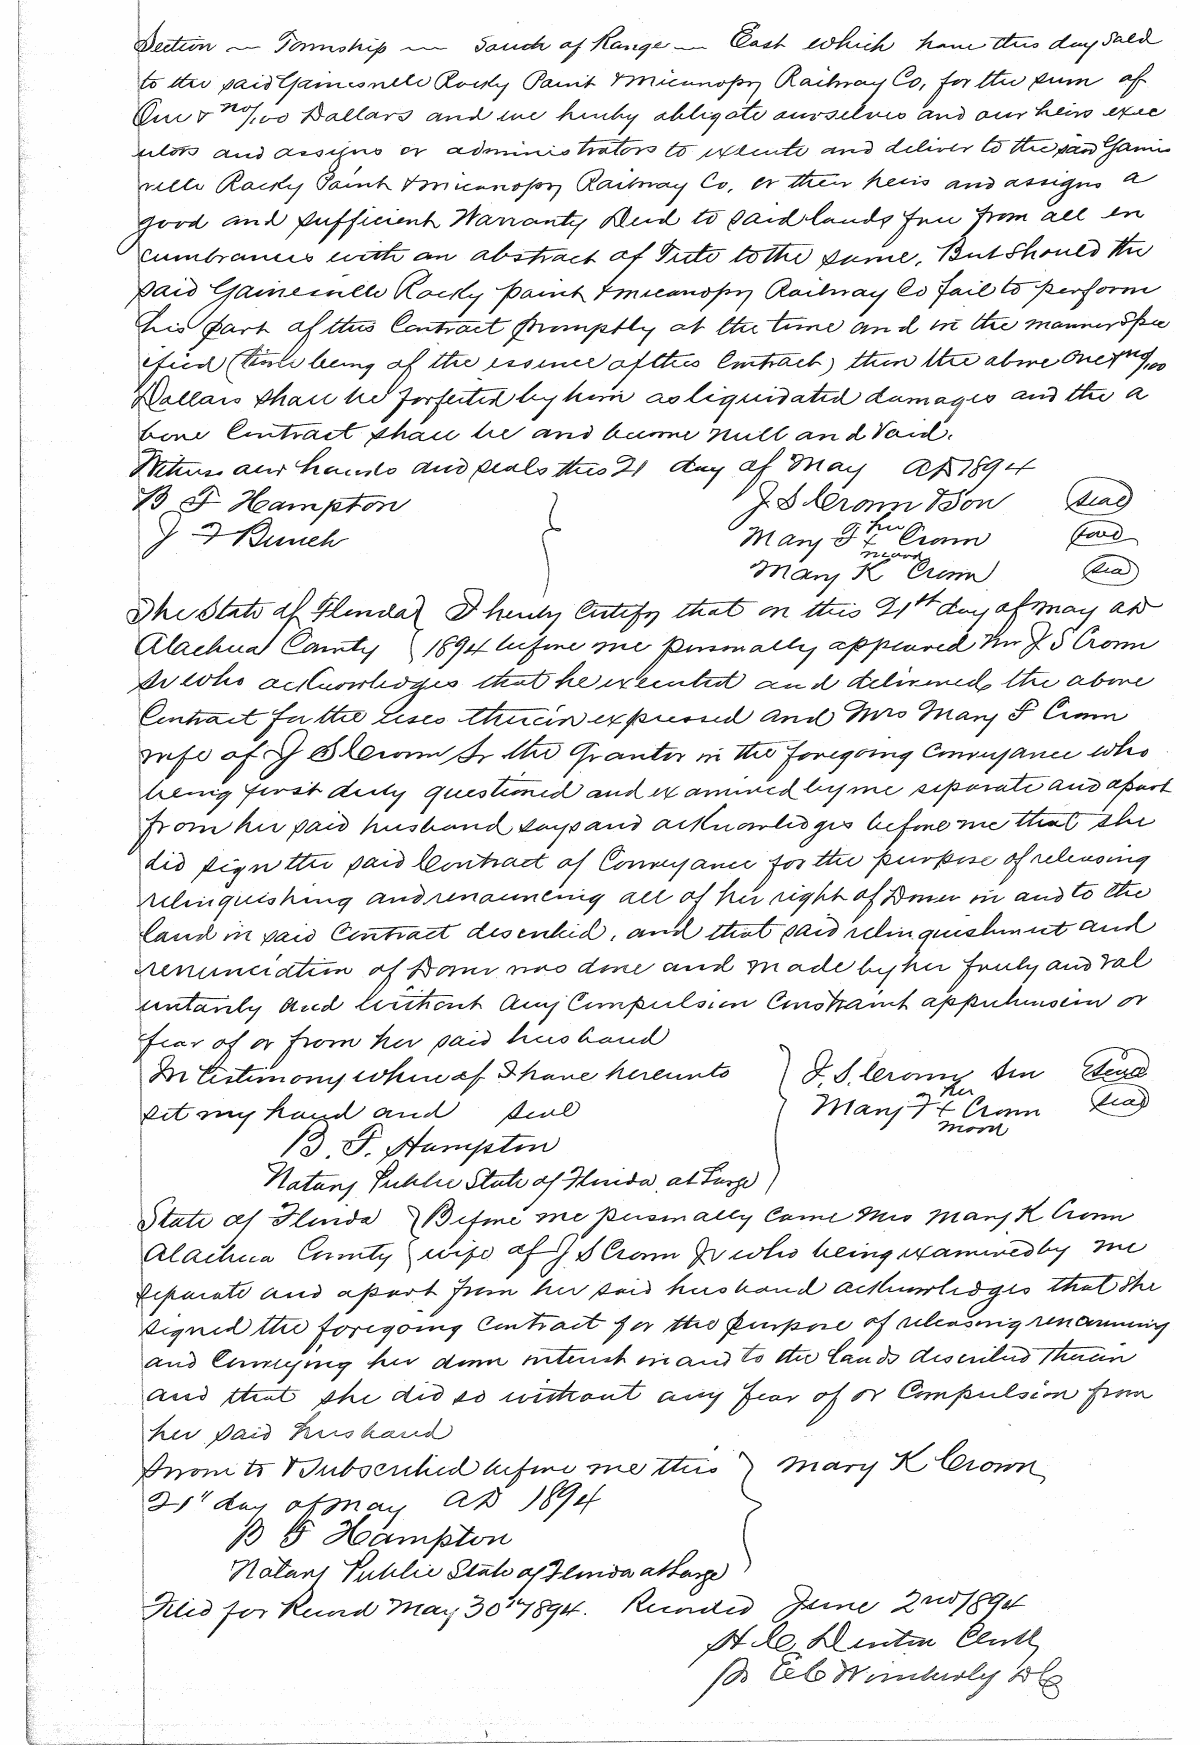 Section — Township — South of Range — East which have this day Sold
to the said Gainesville Rocky Point & Micanopy Railway Co, for the sum of
One & no/100 Dollars and we hereby obligate ourselves and our heirs exec
utors and assigns or administrators to execute and deliver to the said Gaines
ville Rocky Point & Micanopy Railway Co, or their heirs and assigns a
good and sufficient Warranty Deed to said lands free from all en
cumbrances with an abstract of Title to the same. But Should the
said Gainesville Rocky point & micanopy Railway Co fail to perform
his part of this Contract promptly at the time and in the manner Spec
ified (time being of the essence of this Contract) then the above One & no/100
Dollars shall be forfeited by him as liquidated damages and the a
bove Contract shall be and become null and Void.
Witness our hands and seals this 21 day of May AD 1894
B F Hampton } J S Crown & Son (Seal)
J F Bunch Mary F her x mark Crown (Seal)
Mary K Crown (Seal)
The State of Florida } I hereby Certify that on this 21st day of May AD
Alachua County } 1894 before me personally appeared Mr J S Crown
Sr who acknowledges that he executed and delivered the above
Contract for the uses therein expressed and Mrs Mary F Crown
wife of J S Crown Sr the Grantor in the foregoing Conveyance who
being first duly questioned and examined by me separate and apart
from her said husband says and acknowledges before me that she
did sign the said Contract of Conveyance for the purpose of releasing
relinquishing and renouncing all of her right of Dower in and to the
land in said Contract described, and that said relinquishment and
renunciation of Dower was done and made by her freely and vol
untarily and without any Compulsion Constraint apprehension or
fear of or from her said husband
In testimony where of I have hereunto } J. S. Crown Sen (Seal)
set my hand and seal Mary F her x mark Crown (Seal)
B. F. Hampton
Notary Public State of Florida at Large
State of Florida } Before me personally came Mrs Mary K Crown
Alachua County } wife of J S Crown Jr who being examined by me
separate and apart from her said husband acknowledges that She
signed the foregoing Contract for the purpose of releasing renouncing
and Conveying her dower interest in and to the lands described therein
and that she did so without any fear of or Compulsion from
her said husband
Sworn to & Subscribed before me this } Mary K Crown
21st day of May AD 1894
B F Hampton
Notary Public State of Florida at Large
Filed for Record May 30th 1894. Recorded June 2nd 1894
H. C. Denton Clerk
pr E C Wimberly DC